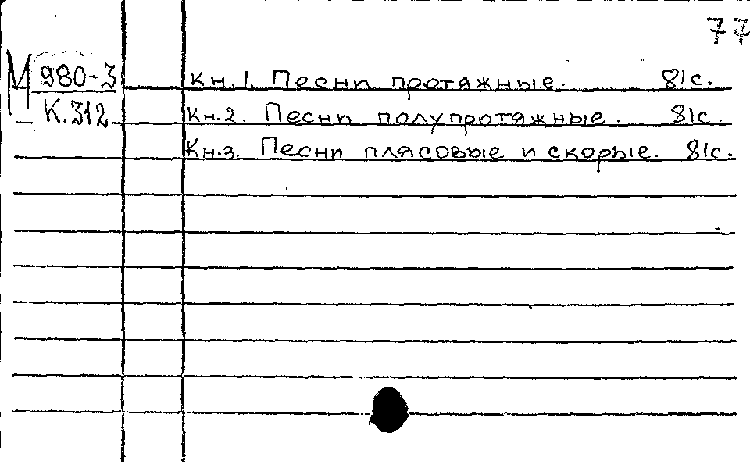 77
М 980-3 Кн.1. Песни протяжные. 81с.
К.312 Кн.2. Песни полупротяжные. 81с.
Кн.3. Песни плясовые и скорые. 81с.